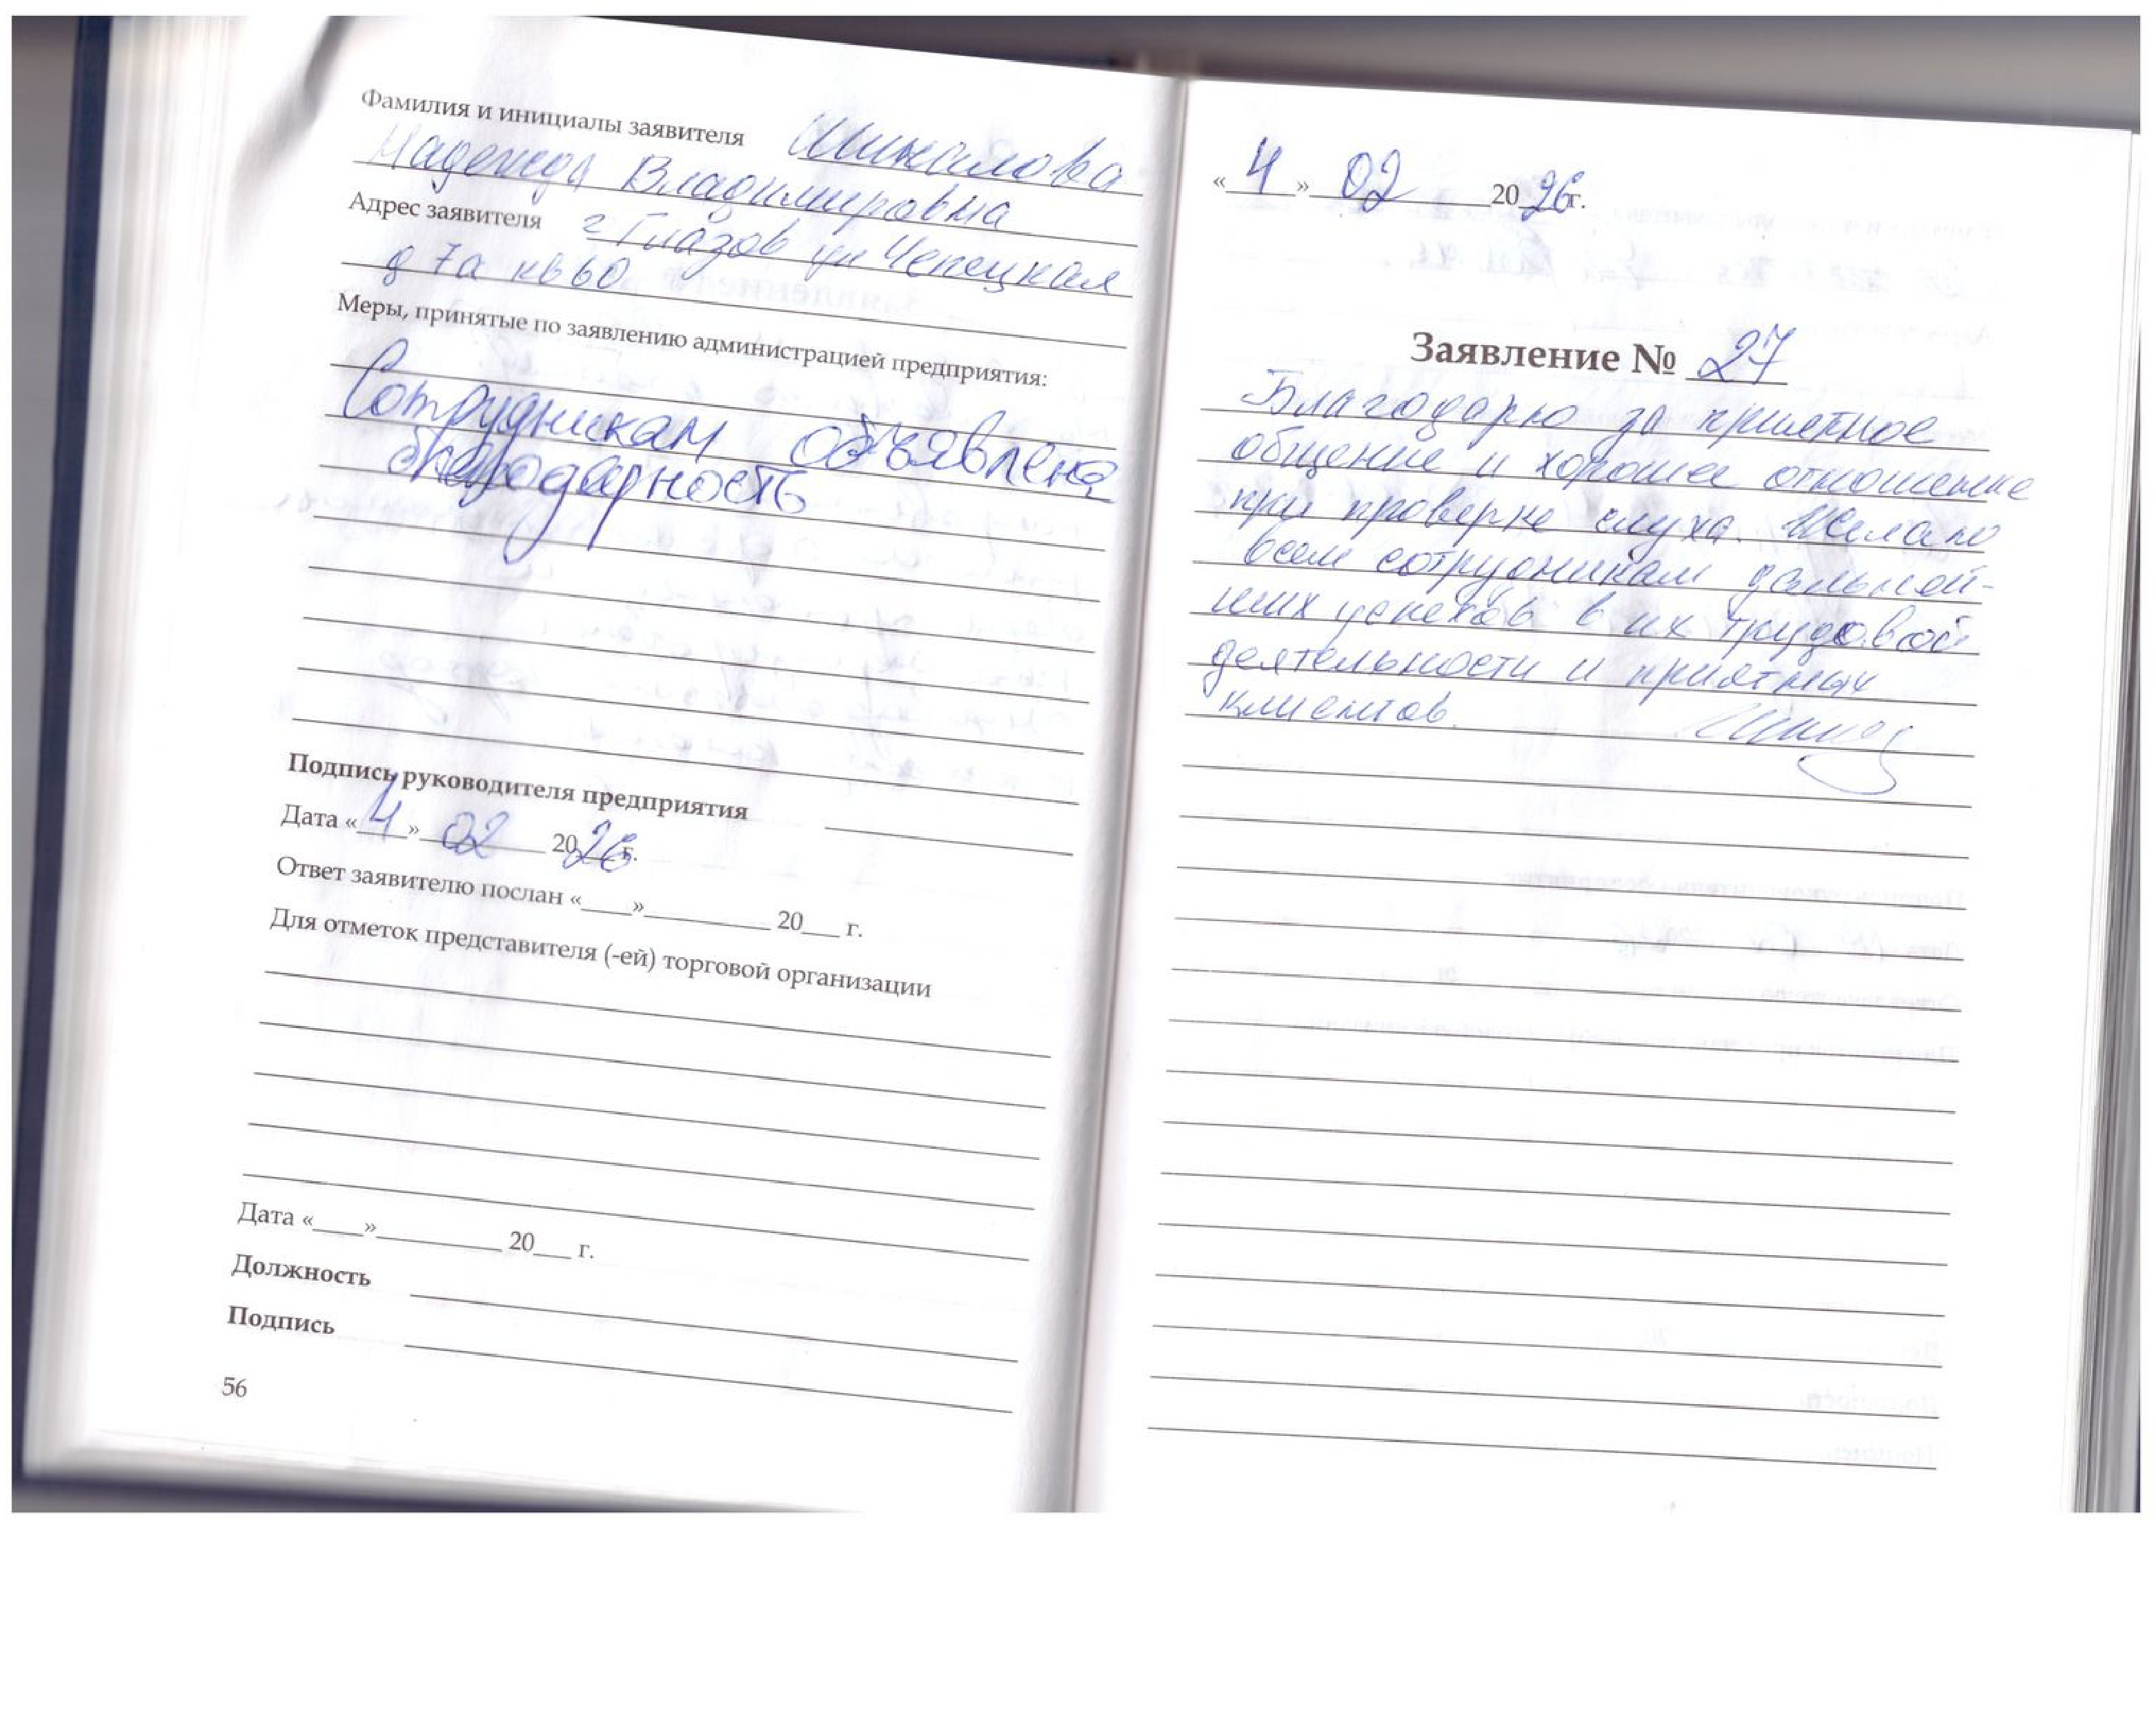 Фамилия и инициалы заявителя
Надежда Владимировна
Адрес заявителя г Глазов ул Чепецкая
д 7а кв 60
Меры, принятые по заявлению администрацией предприятия:
Сотрудникам объявлена
благодарность
Подпись руководителя предприятия
Дата «4» 02 2026 г.
Ответ заявителю послан «____»__________ 20___ г.
Для отметок представителя (-ей) торговой организации
Дата «____»__________ 20___ г.
Должность
Подпись
56
«4» 02 2026г.
Заявление № 27
Благодарю за приятное
общение и хорошее отношение
при проверке слуха. Желаю
всем сотрудникам дальней-
ших успехов в их трудовой
деятельности и приятных
клиентов.